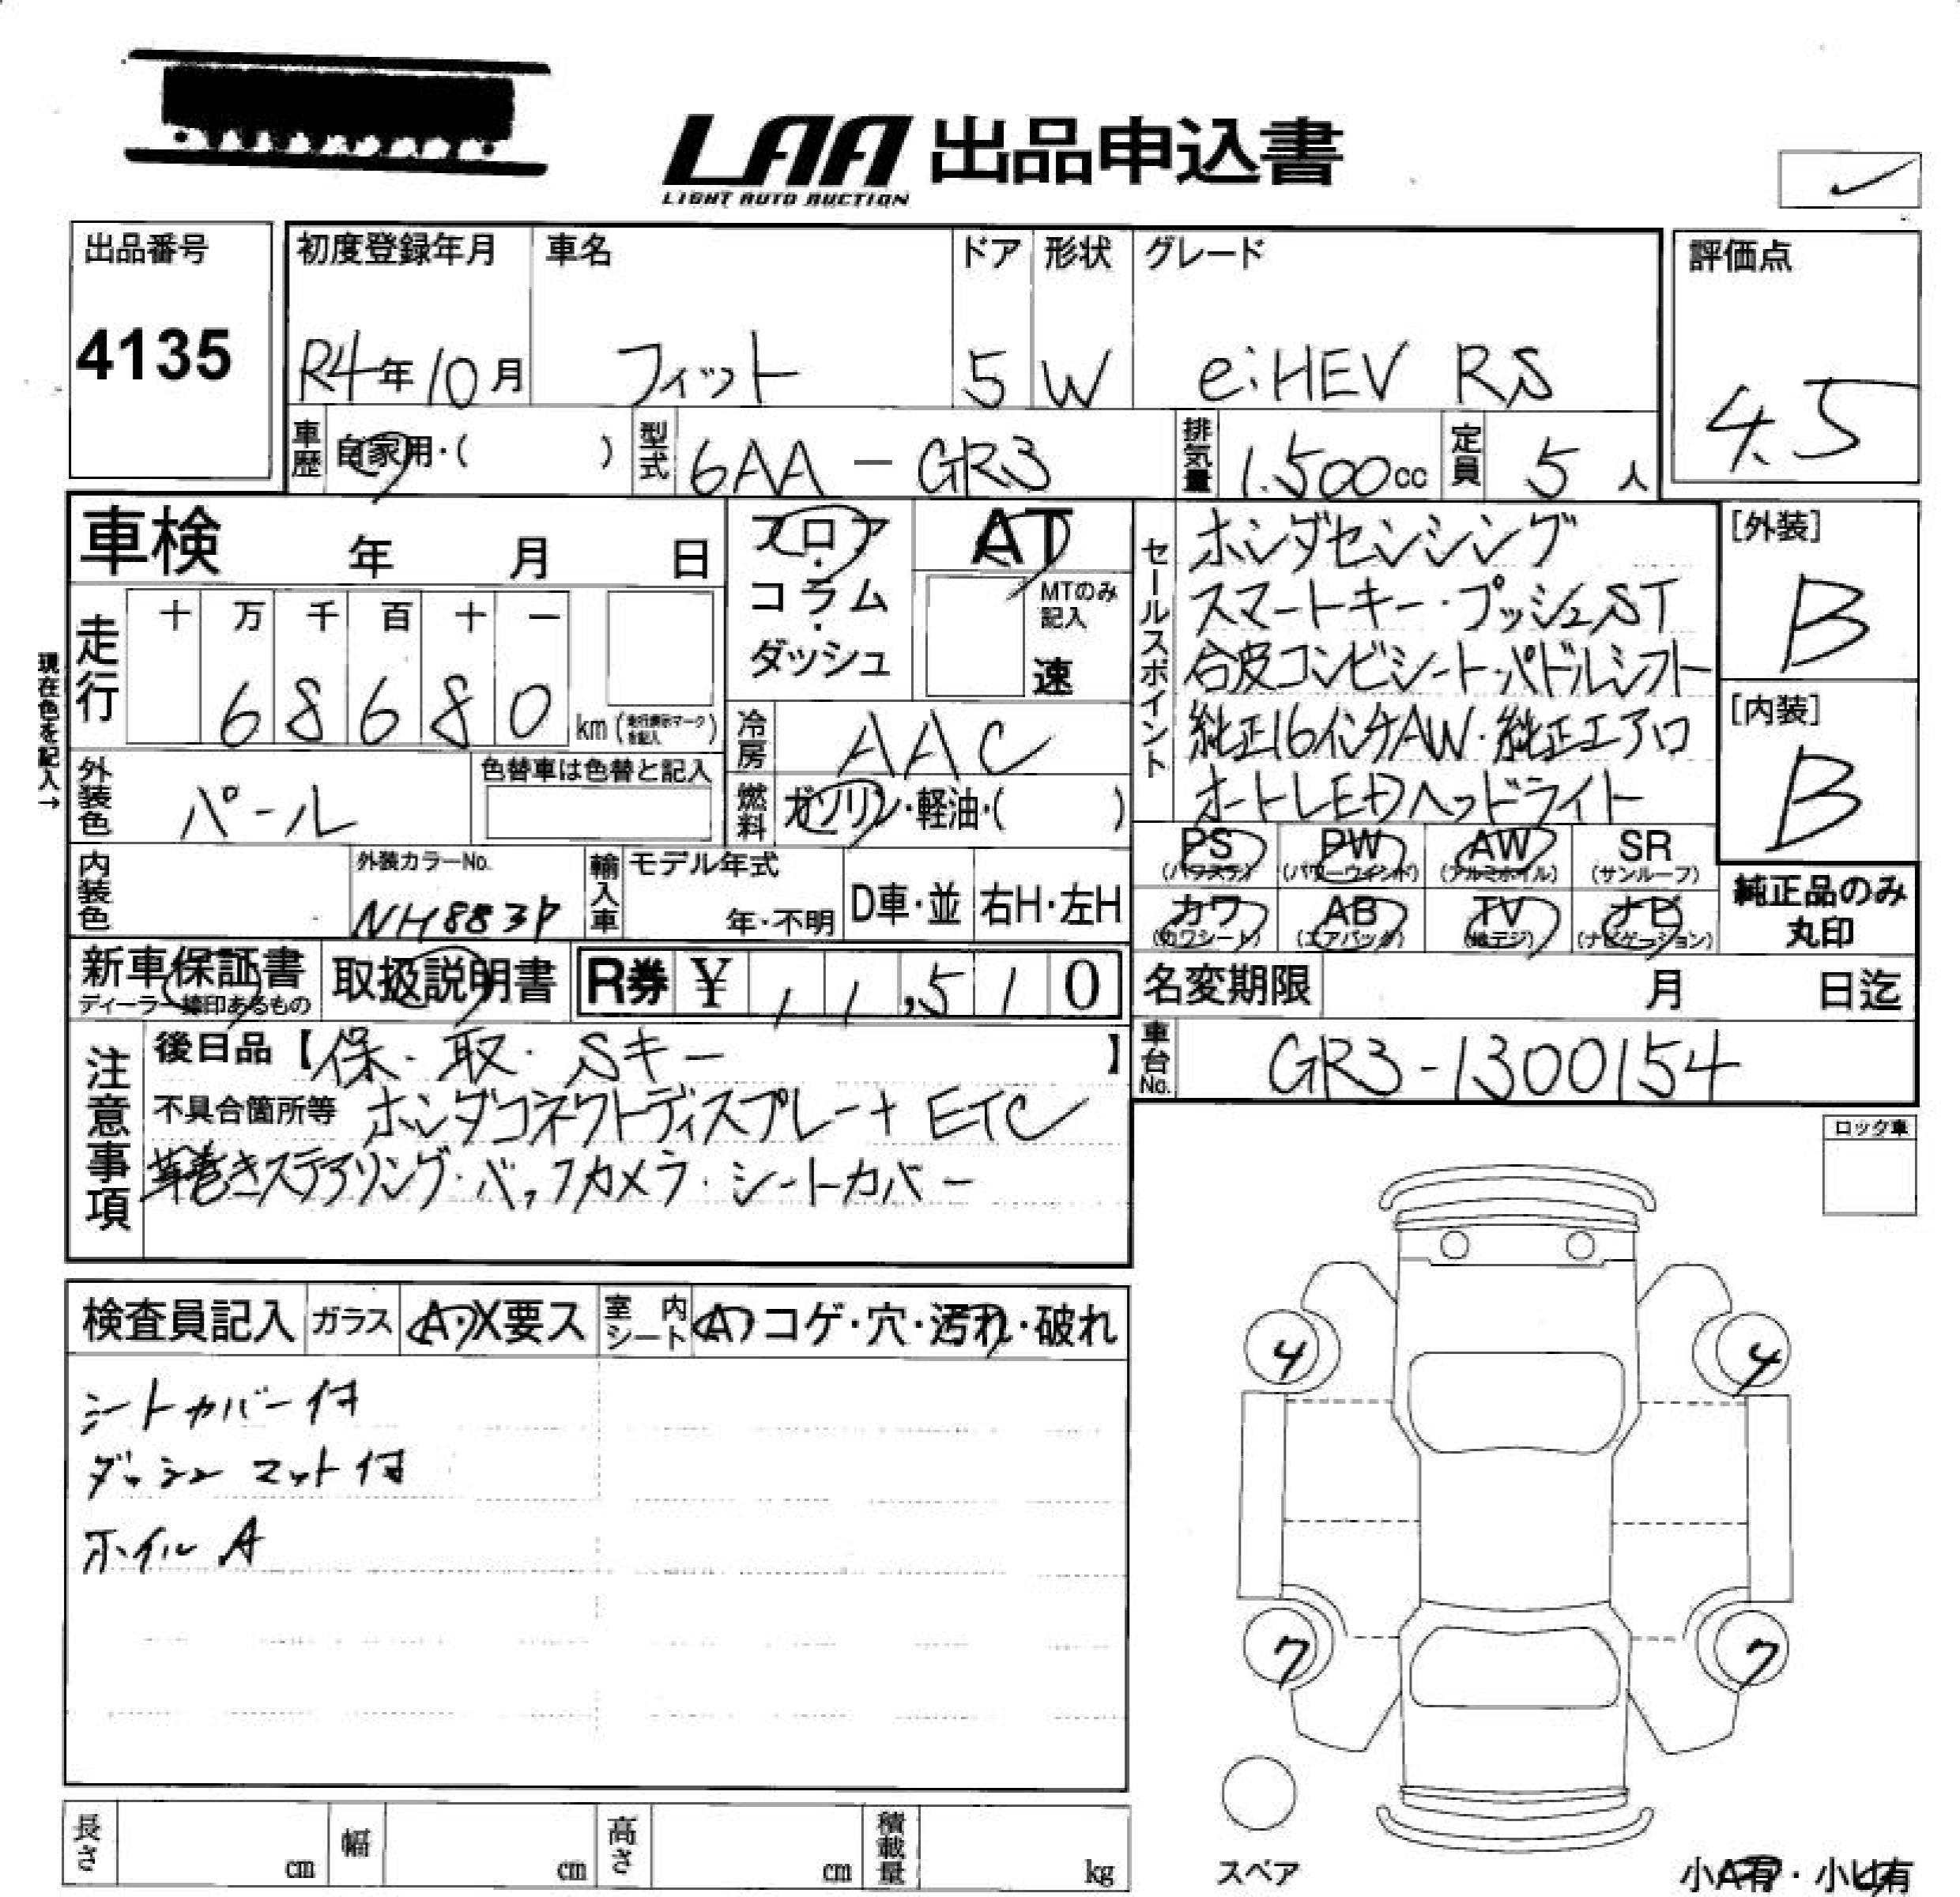 LAA 出品申込書
LIGHT AUTO AUCTION
出品番号
4135
初度登録年月
R4年10月
車名
フィット
ドア
5
形状
W
グレード
e:HEV RS
評価点
4.5
車歴 自家用・( )
型式 6AA-GR3
排気量 1.500cc
定員 5人
車検 年 月 日
フロア・コラム・ダッシュ
AT
MTのみ記入
速
現在色を記入→
走行
十 万 千 百 十 一
6 8 6 8 0 km (走行表示マークを記入)
冷房 AAC
外装色 パール
色替車は色替と記入
燃料 ガソリン・軽油・( )
内装色
外装カラーNo.
NH883P
輸入車
モデル年式
年・不明
D車・並
右H・左H
セールスポイント
ホンダセンシング
スマートキー・プッシュST
合皮コンビシート・パドルシフト
純正16インチAW・純正エアロ
オートLEDヘッドライト
[外装]
B
[内装]
B
PS (パワステ)
PW (パワーウインド)
AW (アルミホイル)
SR (サンルーフ)
カワ (カワシート)
AB (エアバック)
TV (地デジ)
ナビ (ナビゲーション)
純正品のみ
丸印
新車保証書
ディーラー捺印あるもの
取扱説明書
R券 ¥ 11,510
名変期限 月 日迄
車台No. GR3-1300154
注意事項
後日品【保・取・Sキー 】
不具合箇所等 ホンダコネクトディスプレー+ETC
革巻きステアリング・バックカメラ・シートカバー
ロッタ車
検査員記入
ガラス A・X要ス
室内シート A コゲ・穴・汚れ・破れ
シートカバー付
ダッシュマット付
ホイルA
4 4
7 7
スペア
長さ cm
幅 cm
高さ cm
積載量 kg
小A有・小U有